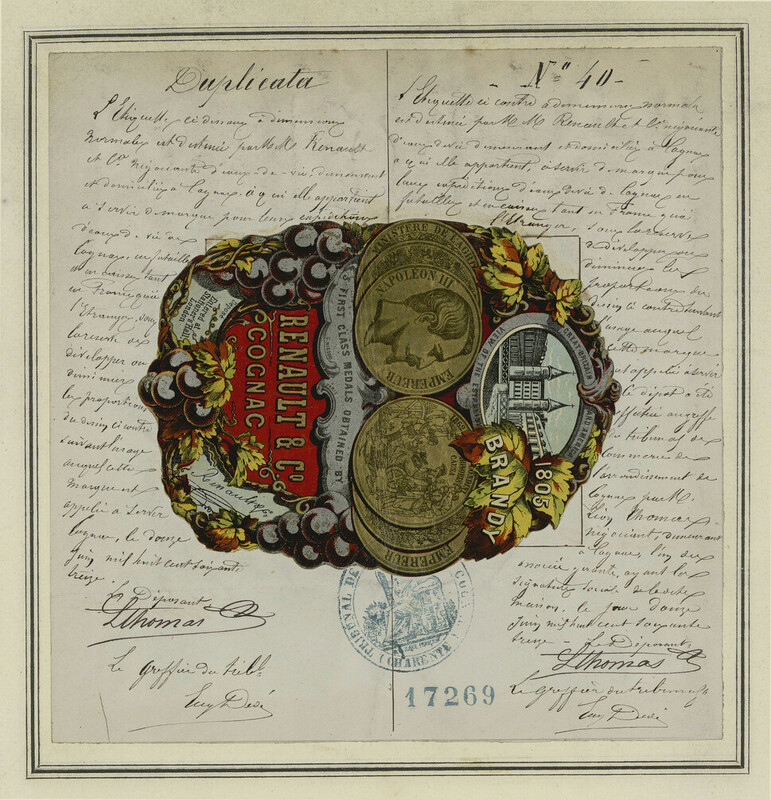 Duplicata
L'Etiquette ci dessous à dimensions
normales est destinée par MM Renault
et Cie Négociants d'eaux-de-vie, demeurant
et domiciliés à Cognac, à qui elle appartient
à servir de marque pour leurs expéditions
d'eaux de vie de
Cognac, en futailles
et en caisses, tant
en France qu'à
l'Etranger, sous
la reserve de
développer ou
diminuer
les proportions
du dessin ci contre
suivant l'usage
auquel cette
marque est
appelée à servir
Cognac, le douze
Juin mil huit cent soixante
treize.
Le Déposant
LThomas
Le greffier du tribl
N° 40-
L'Etiquette ci contre à dimensions normales
est destinée par MM Renault et Cie négociants
d'eaux de vie demeurant et domiciliés à Cognac
à qui elle appartient, à servir de marque pour
leurs expéditions d'eaux de vie de Cognac en
futailles et en caisses tant en France qu'à
l'Etranger, sous la reserve
de développer ou
diminuer les
proportions du
dessin ci contre suivant
l'usage auquel
cette marque
est appelée à servir
le dépôt a été
effectué au greffe
du tribunal de
commerce de
l'arrondissement de
Cognac par M.
Léon Thomas
négociant, demeurant
à Cognac, l'un des
associés gérants, ayant la
signature sociale de ladite
maison, le jour douze
Juin mil huit cent soixante
treize - Le Déposant
LThomas
Le greffier du tribunal
MINISTERE DE L'AGRI
NAPOLEON III
EMPEREUR
EMPEREUR
3 FIRST CLASS MEDALS OBTAINED BY
RENAULT & Co
COGNAC
Entered at
Stationers Hall
London
Depose
GREAT BRITAIN AND AMERICA
VIEW OF THE
1805
BRANDY
TRIBUNAL DE
(CHARENTE)
17269